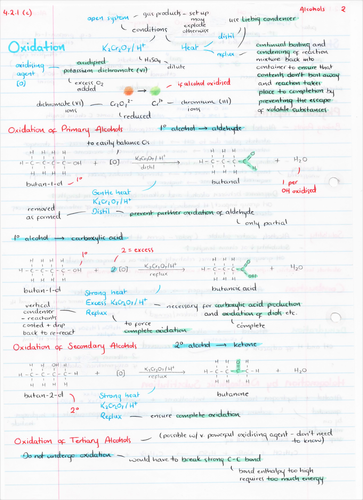 4.2.1 (c)
Alcohols 2
open system → gas products - set up may explode otherwise
conditions
use Liebig condenser
distil
Oxidation
K₂Cr₂O₇/H⁺
Heat
reflux
continual boiling and condensing of reaction mixture back into container to ensure that contents don't boil away and reaction takes place to completion by preventing the escape of volatile substances
oxidising agent [O]
acidified potassium dichromate (VI)
H₂SO₄ dilute
excess O₂ added
if alcohol oxidised
dichromate (VI) ions
Cr₂O₇²⁻
Cr³⁺
chromium (III) ions
reduced
Oxidation of Primary Alcohols
1° alcohol → aldehyde
to easily balance Os
+ [O]
K₂Cr₂O₇/H⁺
distil
+ H₂O
butan-1-ol
1°
butanal
1 per OH oxidised
Gentle heat
K₂Cr₂O₇/H⁺
Distil
removed as formed
prevent further oxidation of aldehyde
only partial
1° alcohol → carboxylic acid
1°
2 = excess
+ 2[O]
K₂Cr₂O₇/H⁺
reflux
+ H₂O
butan-1-ol
butanoic acid
Strong heat
Excess K₂Cr₂O₇/H⁺
Reflux
vertical condenser - reactants cooled + drip back to re-react
necessary for carboxylic acid production and oxidation of diols etc.
to force complete oxidation
complete
Oxidation of Secondary Alcohols
2° alcohol → ketone
+ [O]
K₂Cr₂O₇/H⁺
reflux
+ H₂O
butan-2-ol
2°
butanone
Strong heat
K₂Cr₂O₇/H⁺
Reflux
ensure complete oxidation
Oxidation of Tertiary Alcohols
(possible w/ v powerful oxidising agent - don't need to know)
Do not undergo oxidation
would have to break strong C-C bond
bond enthalpy too high
requires too much energy